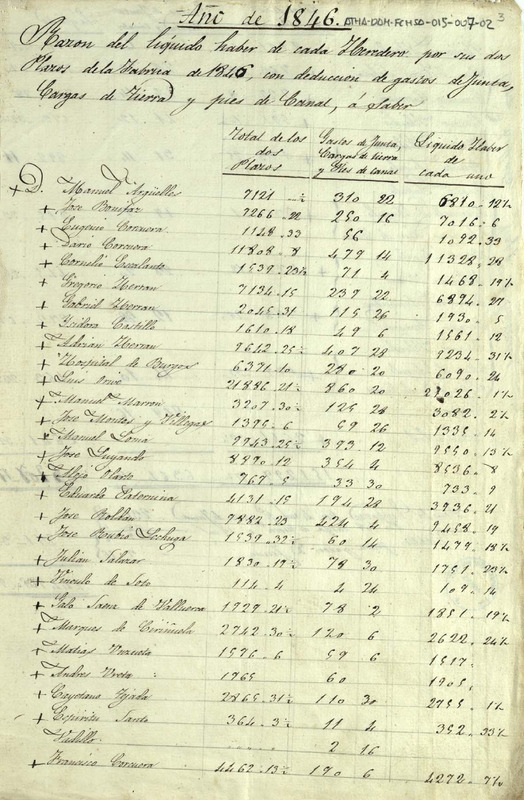 Año de 1846.
ATHA-DOM-FCHSO-015-007-02
3
Razon del líquido haber de cada Heredero por sus dos
Plazos de la Fabrica de 1846, con deduccion de gastos de Junta,
Cargas de Tierra y pies de Canal, á saber
Total de los dos Plazos
Gastos de Junta, Cargas de tierra y Pies de canal
Líquido Haber de cada uno
+ D. Manuel Argüelles 7121 310 22 6810 12½
+ Jose Bonifaz 7266 22 250 16 7016 6
+ Eugenio Corcuera 1148 33 56 1092 33
+ Dario Corcuera 11808 8 479 14 11328 28
+ Cornelio Escalante 1539 23½ 71 4 1468 19½
+ Gregorio Herran 7134 15 239 22 6894 27
+ Gabriel Herran 2045 31 115 26 1930 5
+ Ysidora Castillo 1610 18 49 6 1561 12
+ Adrian Herran 9642 25½ 407 28 9234 31½
+ Hospital de Burgos 6371 10 280 20 6090 24
+ Luis 21886 21½ 860 20 21026 1½
+ Manuel Marron 3207 30½ 125 28 3082 2½
+ Jose Montes y Villegas 1395 6 59 26 1335 14
+ Manuel Loma 9943 25½ 393 12 9550 13½
+ Jose Luyando 8890 12 354 4 8536 8
+ Alejo Olarte 767 5 33 30 733 9
+ Eduardo Paternina 4131 15 194 28 3936 21
+ Jose Roldán 9882 23 424 4 9458 19
+ Jose Rubio Lechuga 1539 32½ 60 14 1479 18½
+ Julian Salazar 1830 19½ 78 30 1751 23½
+ Vinculo de Soto 114 4 4 24 109 14
+ Galo Saenz de Valluerca 1929 21½ 78 2 1851 19½
+ Marques de Ciriñuela 2742 30½ 120 6 2622 24½
+ Matias 1576 6 59 6 1517
+ Andres Ureta 1965 60 1905
+ Cayetano Tejada 2865 31½ 110 30 2755 1½
+ Espiritu Santo 364 3½ 11 4 352 33½
Vadillo 2 16
+ Francisco Corcuera 4462 13½ 190 6 4272 7½